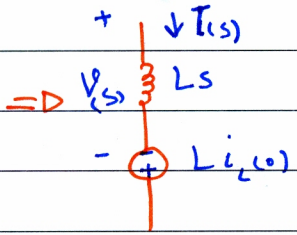 + ↓ I(s)
⇒ V(s) Ls
- L i_L(0)
- +